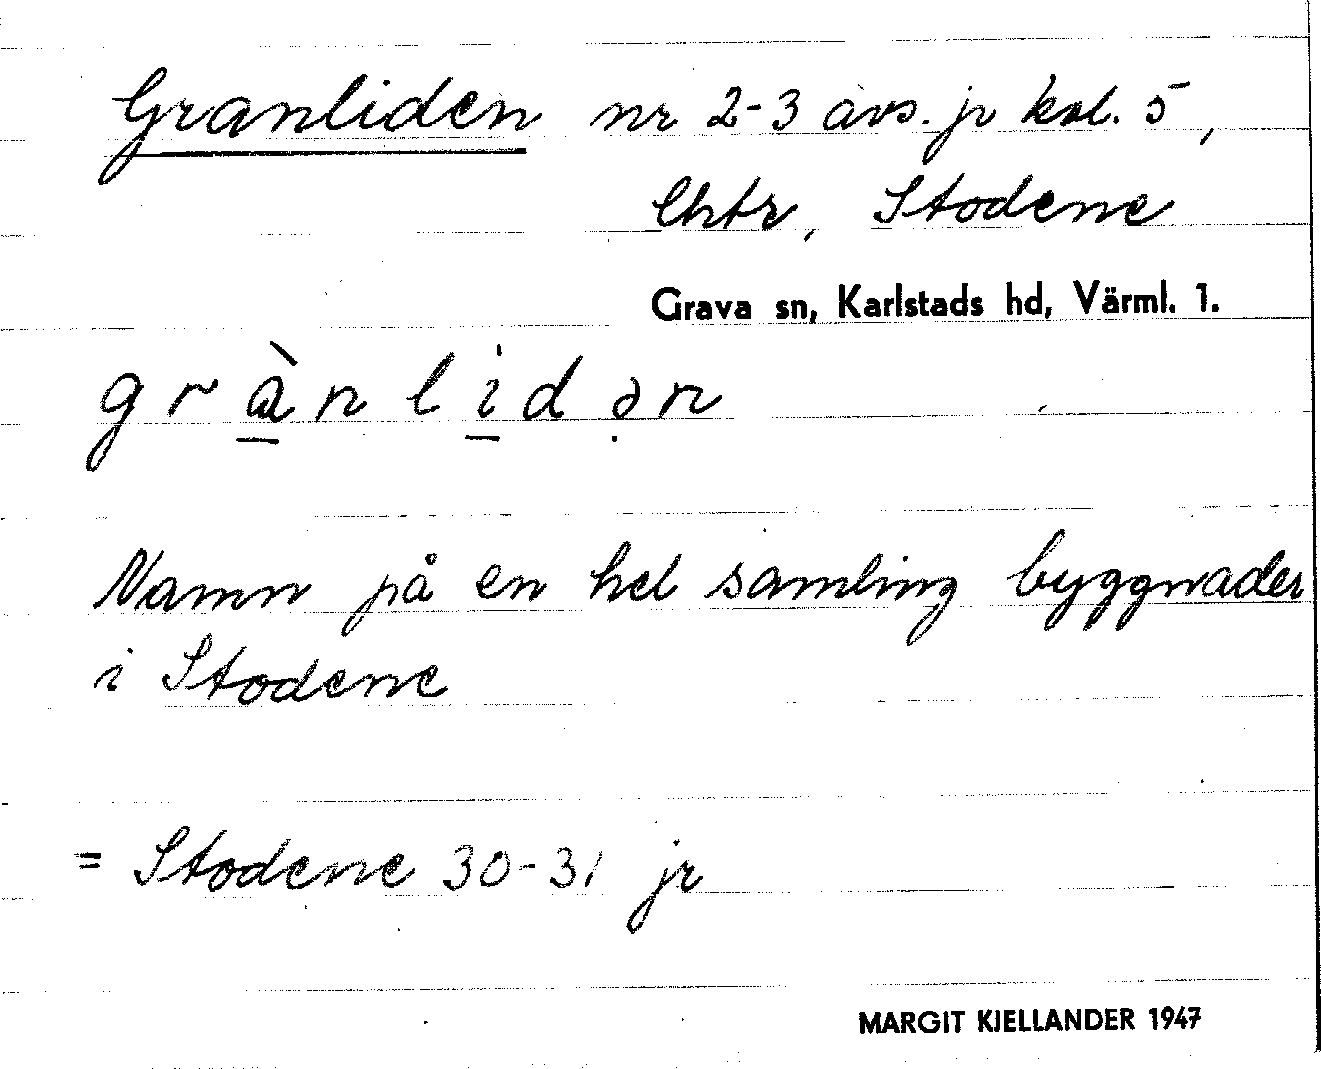 Granliden nr 2-3 avs. jr kol. 5,
lhtr, Stodene
Grava sn, Karlstads hd, Värml. 1.
grànlidən
Namn på en hel samling byggnader
i Stodene
= Stodene 30-31 jr
MARGIT KJELLANDER 1947